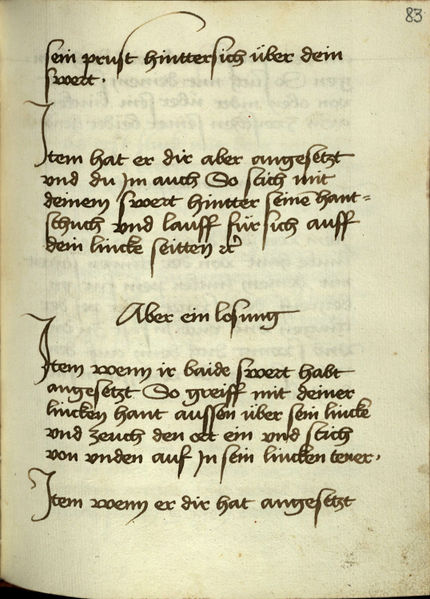 83
sein prust hinttersich über dein
swert ·
Item hat er dir aber angesetzt
vnd du Im auch So stich mit
deinem swert hintter seine hant=
schuch vnd lauff für sich auff
dein lincke seitten etc
Aber ein losung
Item wenn ir baide swert habt
angesetzt So greiff mit deiner
lincken hant aussen über sein lincke
vnd zeuch den ort ein vnd stich
von vnden auf In sein lincken tener ·
Item wenn er dir hat angesetzt